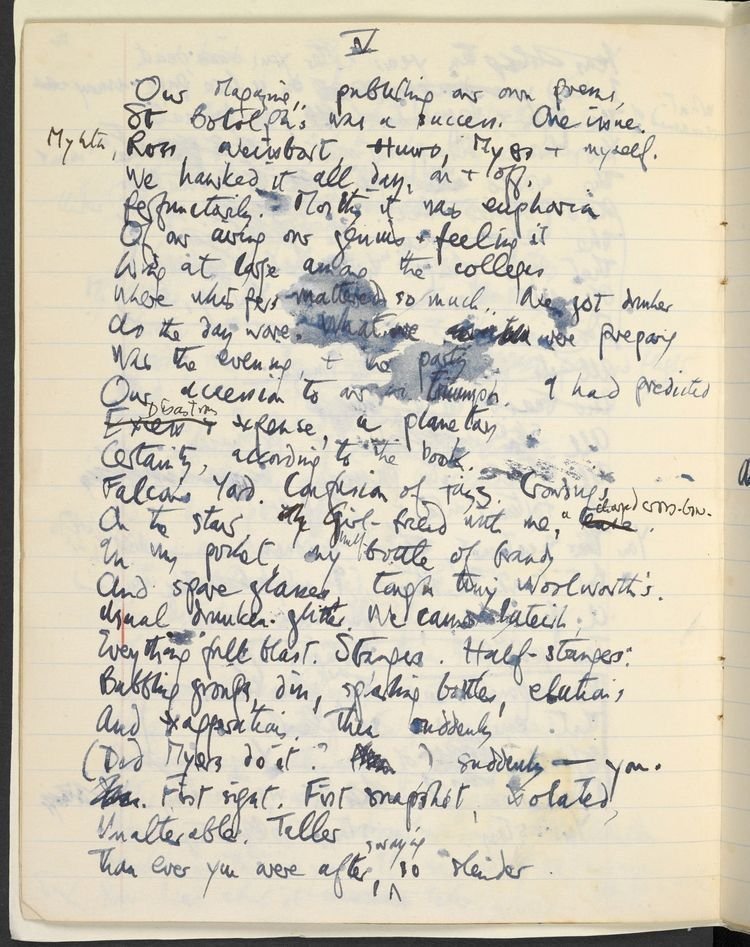 V
Our Magazine, publishing our own poems,
St Botolph's was a success. One issue.
Myhta, Ross, Weissbort, Huws, Myers + myself.
We hawked it all day, on + off,
Perfunctorily. Mostly it was euphoria
Of our airing our genius + feeling it
living at large among the colleges
Where whispers mattered so much. We got drunker
As the day wore. What we were preparing
Was the evening, + the party
Our accession to our triumph. I had predicted
Disastrous
expense, a planetary
Certainty, according to the book.
Falcon Yard. Confusion of jazz. Crowding
On the stair. Girl-friend with me, a charged cross-bow.
In my pocket, my small bottle of brandy
And spare glasses, tough tiny Woolworth's.
usual drunken-glitter. We came lateish,
Everything full blast. Strangers. Half-strangers.
Babbling groups, din, splashing bottles, elations
And exasperations, then suddenly
(Did Myers do it? ) suddenly — you.
First sight. First snapshot, isolated,
Unalterable. Taller
swaying
Than ever you were after, so slender.